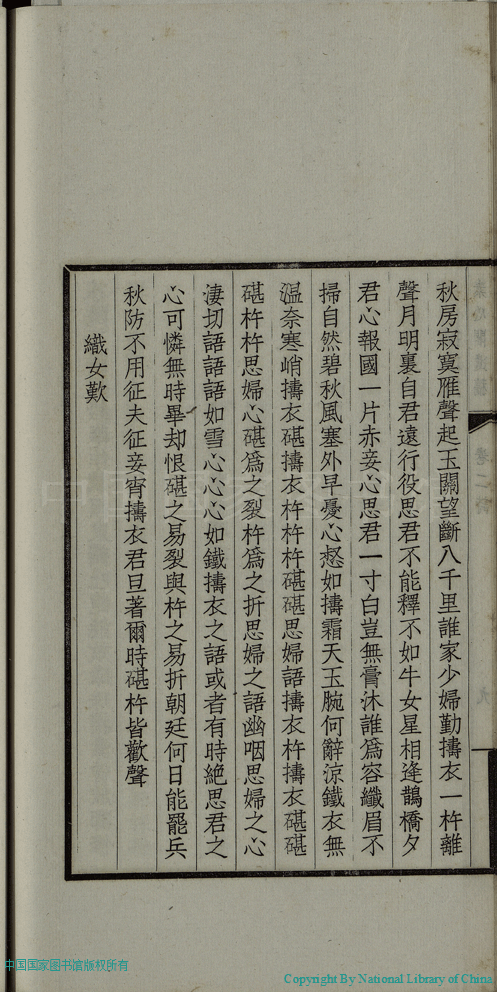 秋房寂寞雁聲起玉關望斷八千里誰家少婦勤擣衣一杵離
聲月明裏自君遠行役思君不能釋不如牛女星相逢鵲橋夕
君心報國一片赤妾心思君一寸白豈無膏沐誰爲容纖眉不
掃自然碧秋風塞外早憂心惄如擣霜天玉腕何辭涼鐵衣無
溫奈寒峭擣衣碪擣衣杵杵杵碪碪思婦語擣衣杵擣衣碪碪
碪杵杵思婦心碪爲之裂杵爲之折思婦之語幽咽思婦之心
淒切語語語如雪心心心如鐵擣衣之語或者有時絕思君之
心可憐無時畢却恨碪之易裂與杵之易折朝廷何日能罷兵
秋防不用征夫征妾宵擣衣君旦著爾時碪杵皆歡聲
織女歎
卷二
九
中国国家图书馆版权所有
Copyright By National Library of China